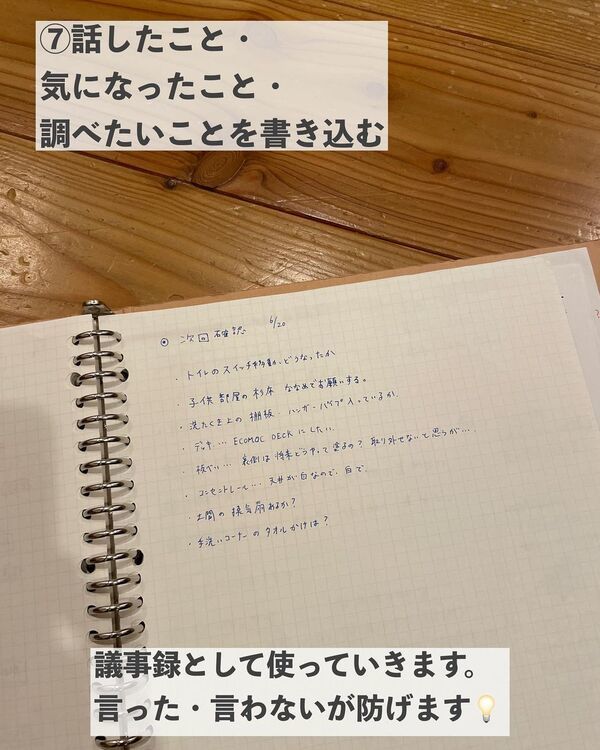 ⑦話したこと・
気になったこと・
調べたいことを書き込む
次回確認 6/20
・トイレのスイッチ移動、どうなったか
・子供部屋の杉床 ななめでお願いする。
・洗たくき上の棚板・ハンガーパイプ入っているか。
・デッキ… ECOMOC DECKにしたい。
・板べい… 裏側は将来どうやって塗るの？取り外せないと思うが…。
・コンセントレール… 天井が白なので、白で。
・土間の換気扇あるか？
・手洗いコーナーのタオルかけは？
議事録として使っていきます。
言った・言わないが防げます💡